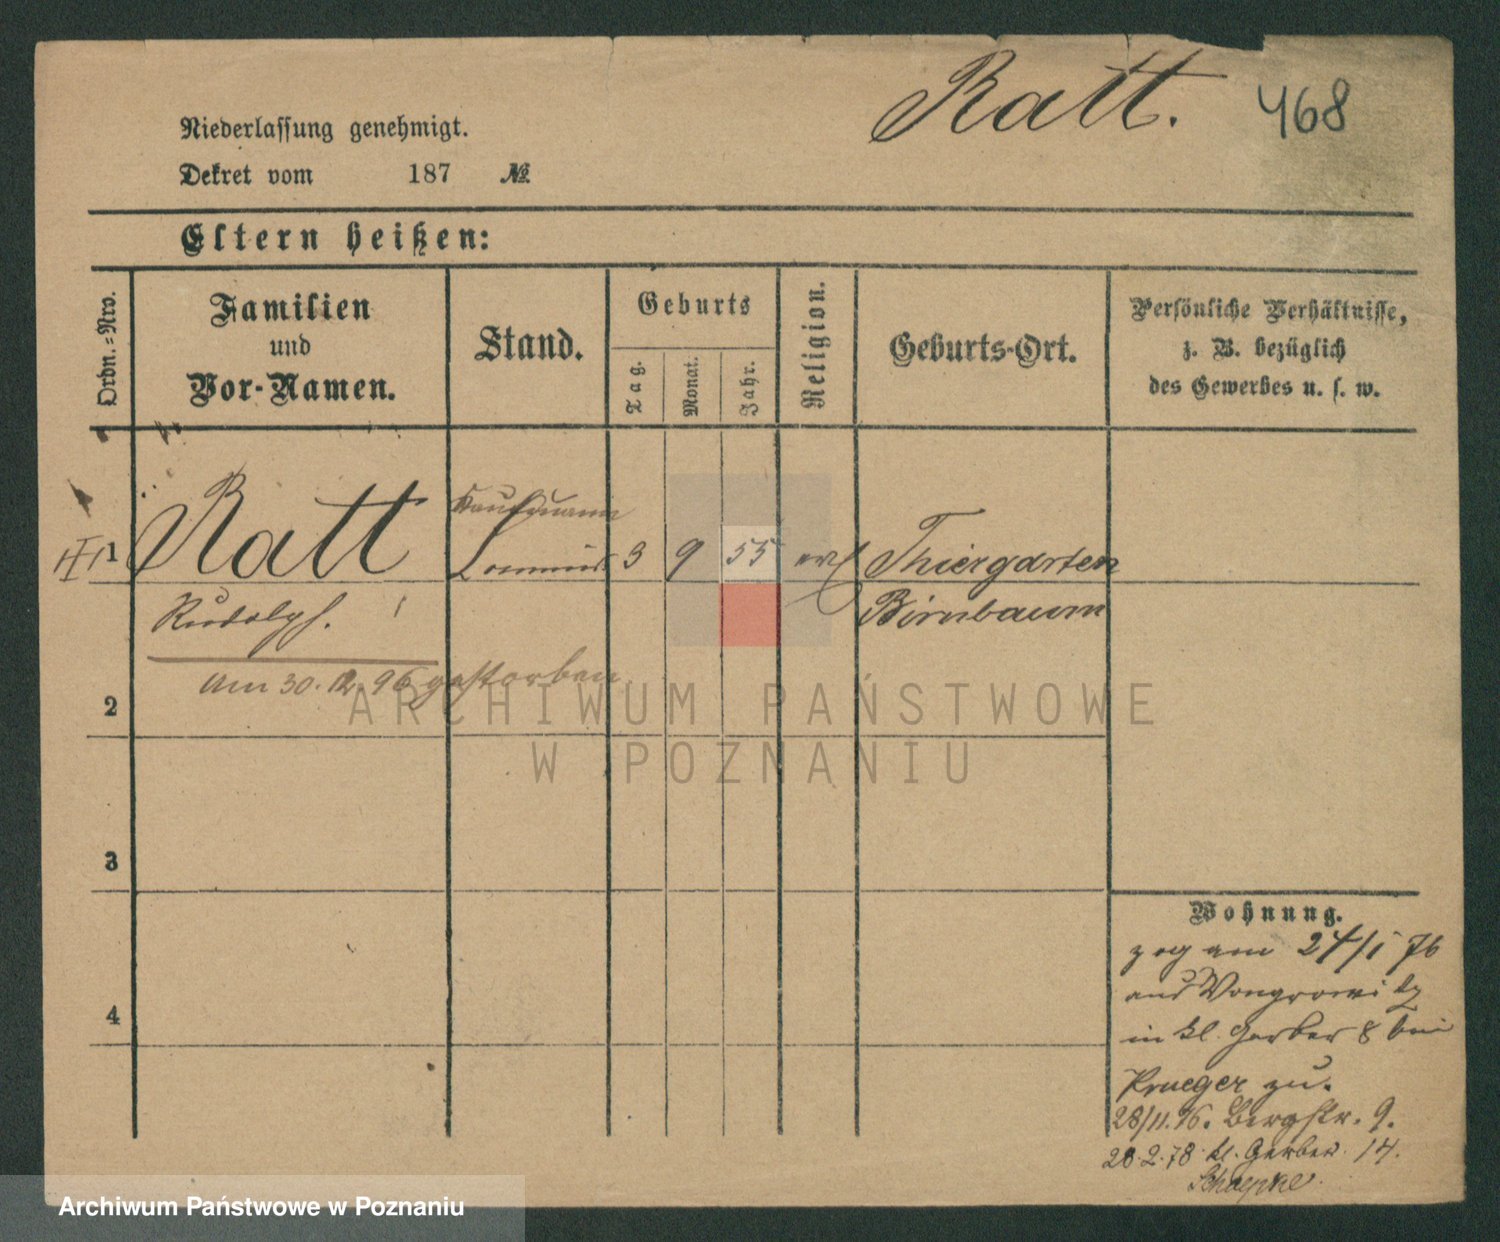 Ratt. 468
Niederlassung genehmigt.
Dekret vom 187 №
Eltern heißen:
Ordn.-Nro.
Familien
und
Vor-Namen.
Stand.
Geburts
Tag.
Monat.
Jahr.
Religion.
Geburts-Ort.
Persönliche Verhältnisse,
z. B. bezüglich
des Gewerbes u. s. w.
Kaufmann
1 Ratt Commis 3 9 55 Thiergarten
Rudolph. Birnbaum
am 30. 12. 96 gestorben
2
3
4
Wohnung.
zog am 24/1 76
aus Wongrowitz
in kl. Gerber 8 bei
Prueger zu.
28/11. 76. Bergstr. 9.
28. 2. 78. kl. Gerber 14.
ARCHIWUM PAŃSTWOWE
W POZNANIU
Archiwum Państwowe w Poznaniu